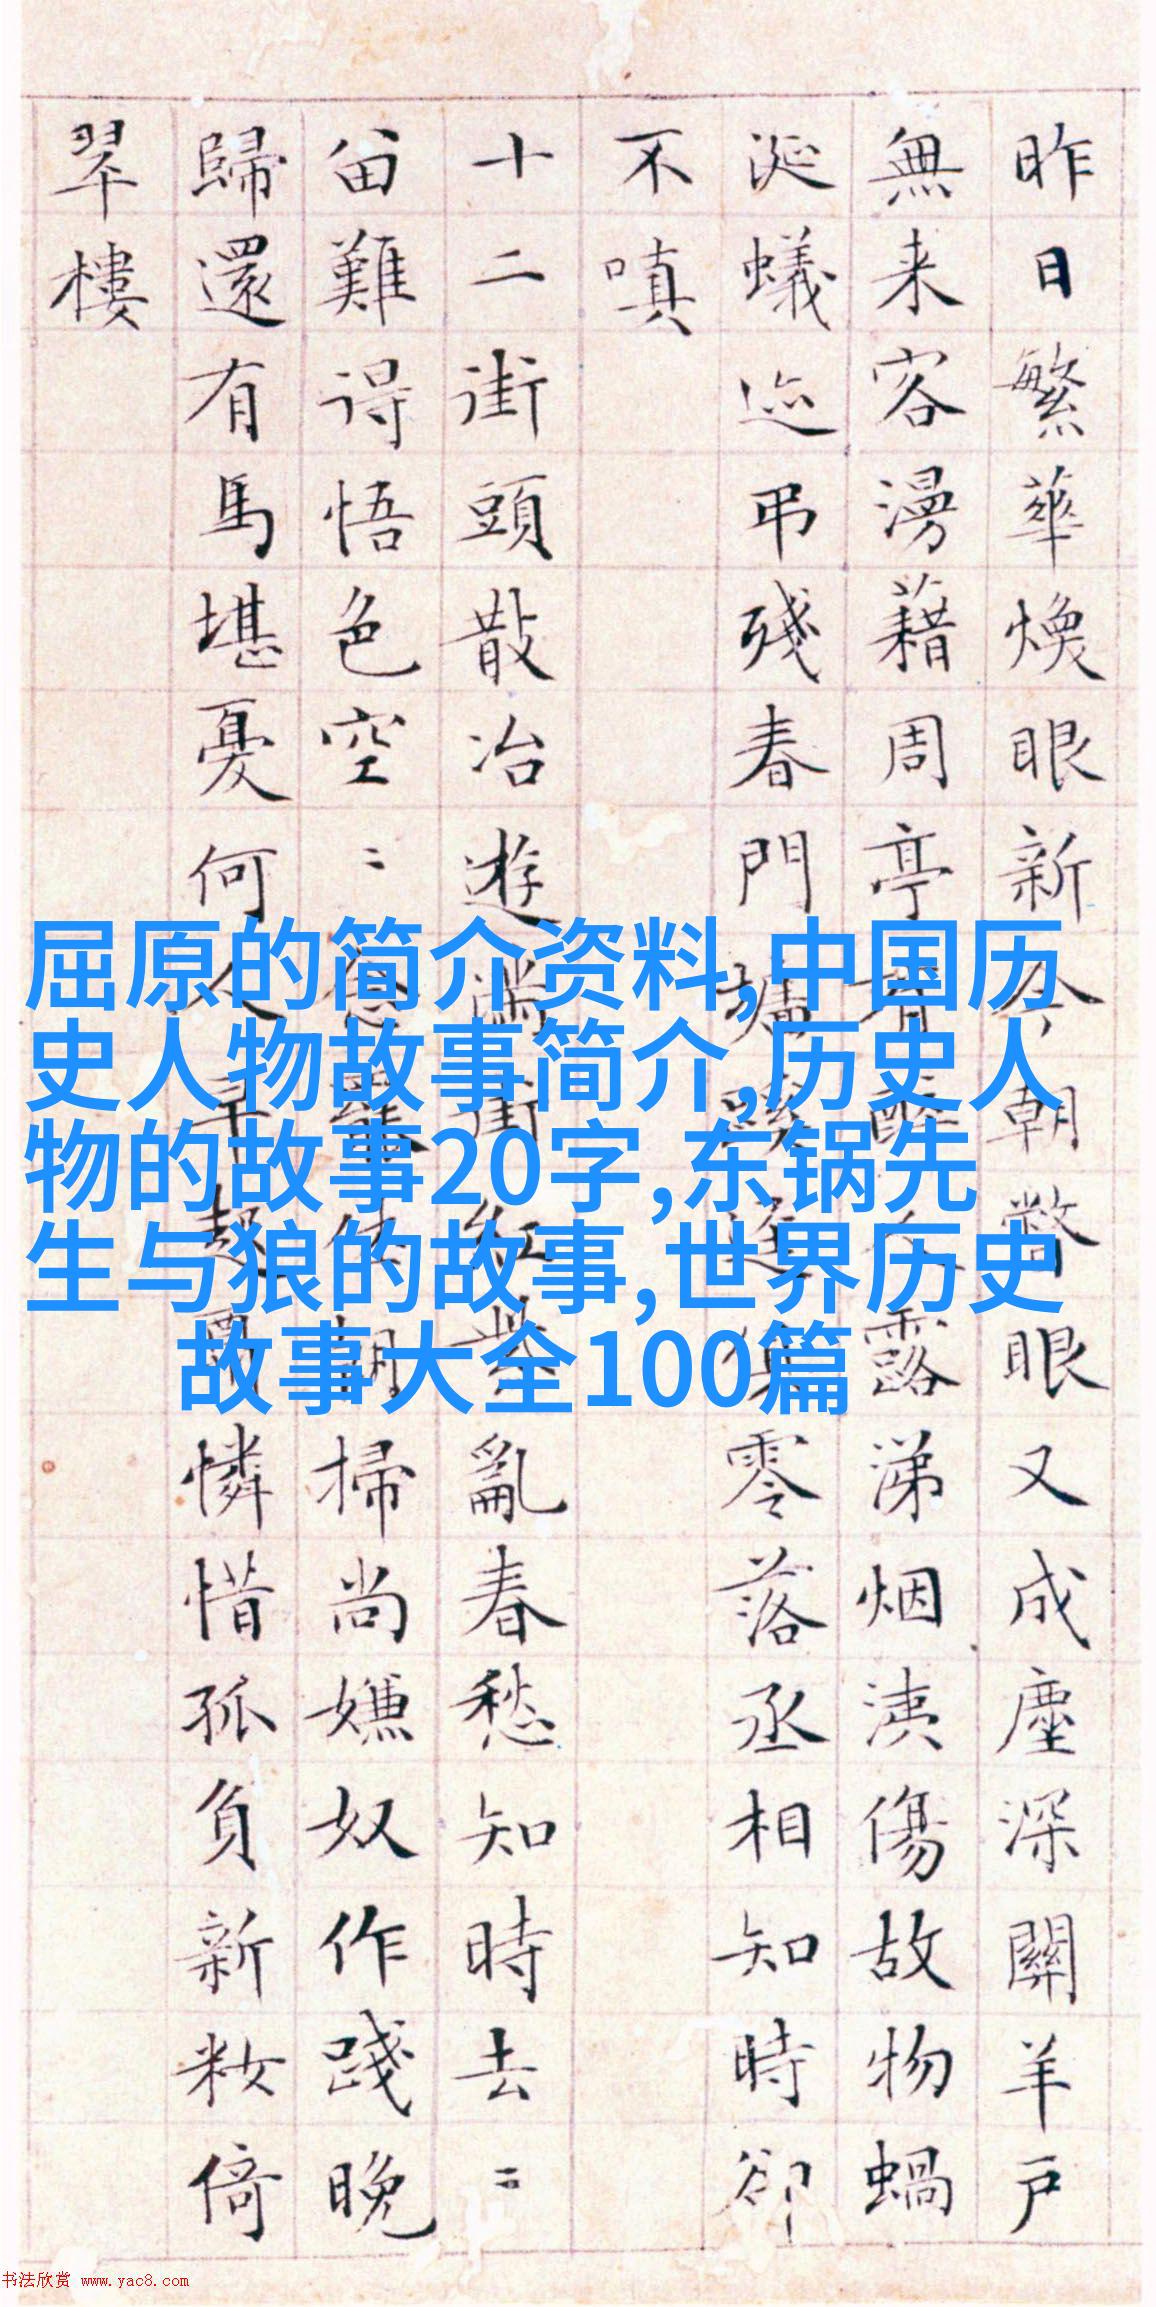 昨日繁華煥眼新今朝瞥眼又成塵深關羊戶
無来客漫藉周亭有醉人露涕烟洟傷故物蝸
涎蟻迹弔殘春門墻蹊逕俱零落丞相知時卻
不嗔
十二街頭散冶遊滿街紅紫亂春愁知時去〻
留難得悟色空〻掃尚嫌奴作踐晚
歸還有馬堪憂何人早起憐惜孤負新妝倚
翠樓
屈原的简介资料,中国历
史人物故事简介,历史人
物的故事20字,东锅先
生与狼的故事,世界历史
故事大全100篇
书法欣赏 www.yac8.com